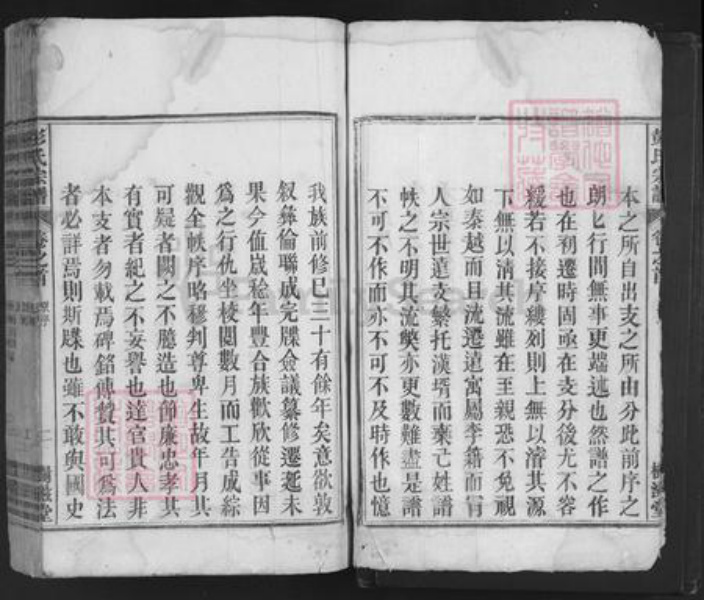 彭氏宗譜 卷之首
樹滋堂
本之所自出支之所由分此前序之
朗匕行間無事更端述也然譜之作
也在初遷時固亟在支分後尤不容
緩若不接序縷列則上無以濬其源
下無以清其流雖在至親恐不免視
如秦越而且流遷遠寓屬李籍而冐
人宗世遠支繁托漢壻而棄己姓譜
帙之不明其流獘亦更數難盡是譜
不可不作而亦不可不及時作也憶
我族前修已三十有餘年矣意欲敦
叙彝倫聯成完牒僉議纂修遷延未
果今値嵗稔年豐合族歡欣從事因
爲之行仇坐梭閱數月而工告成綜
觀全帙序略穆判尊卑生故年月其
可疑者闕之不臆造也節廉忠孝其
有實者紀之不妄譽也達官貴人非
本支者勿載焉碑銘傳贊其可爲法
者必詳焉則斯牒也雖不敢與國史
彭氏宗譜 卷之首
二
樹滋堂
FamilySearch